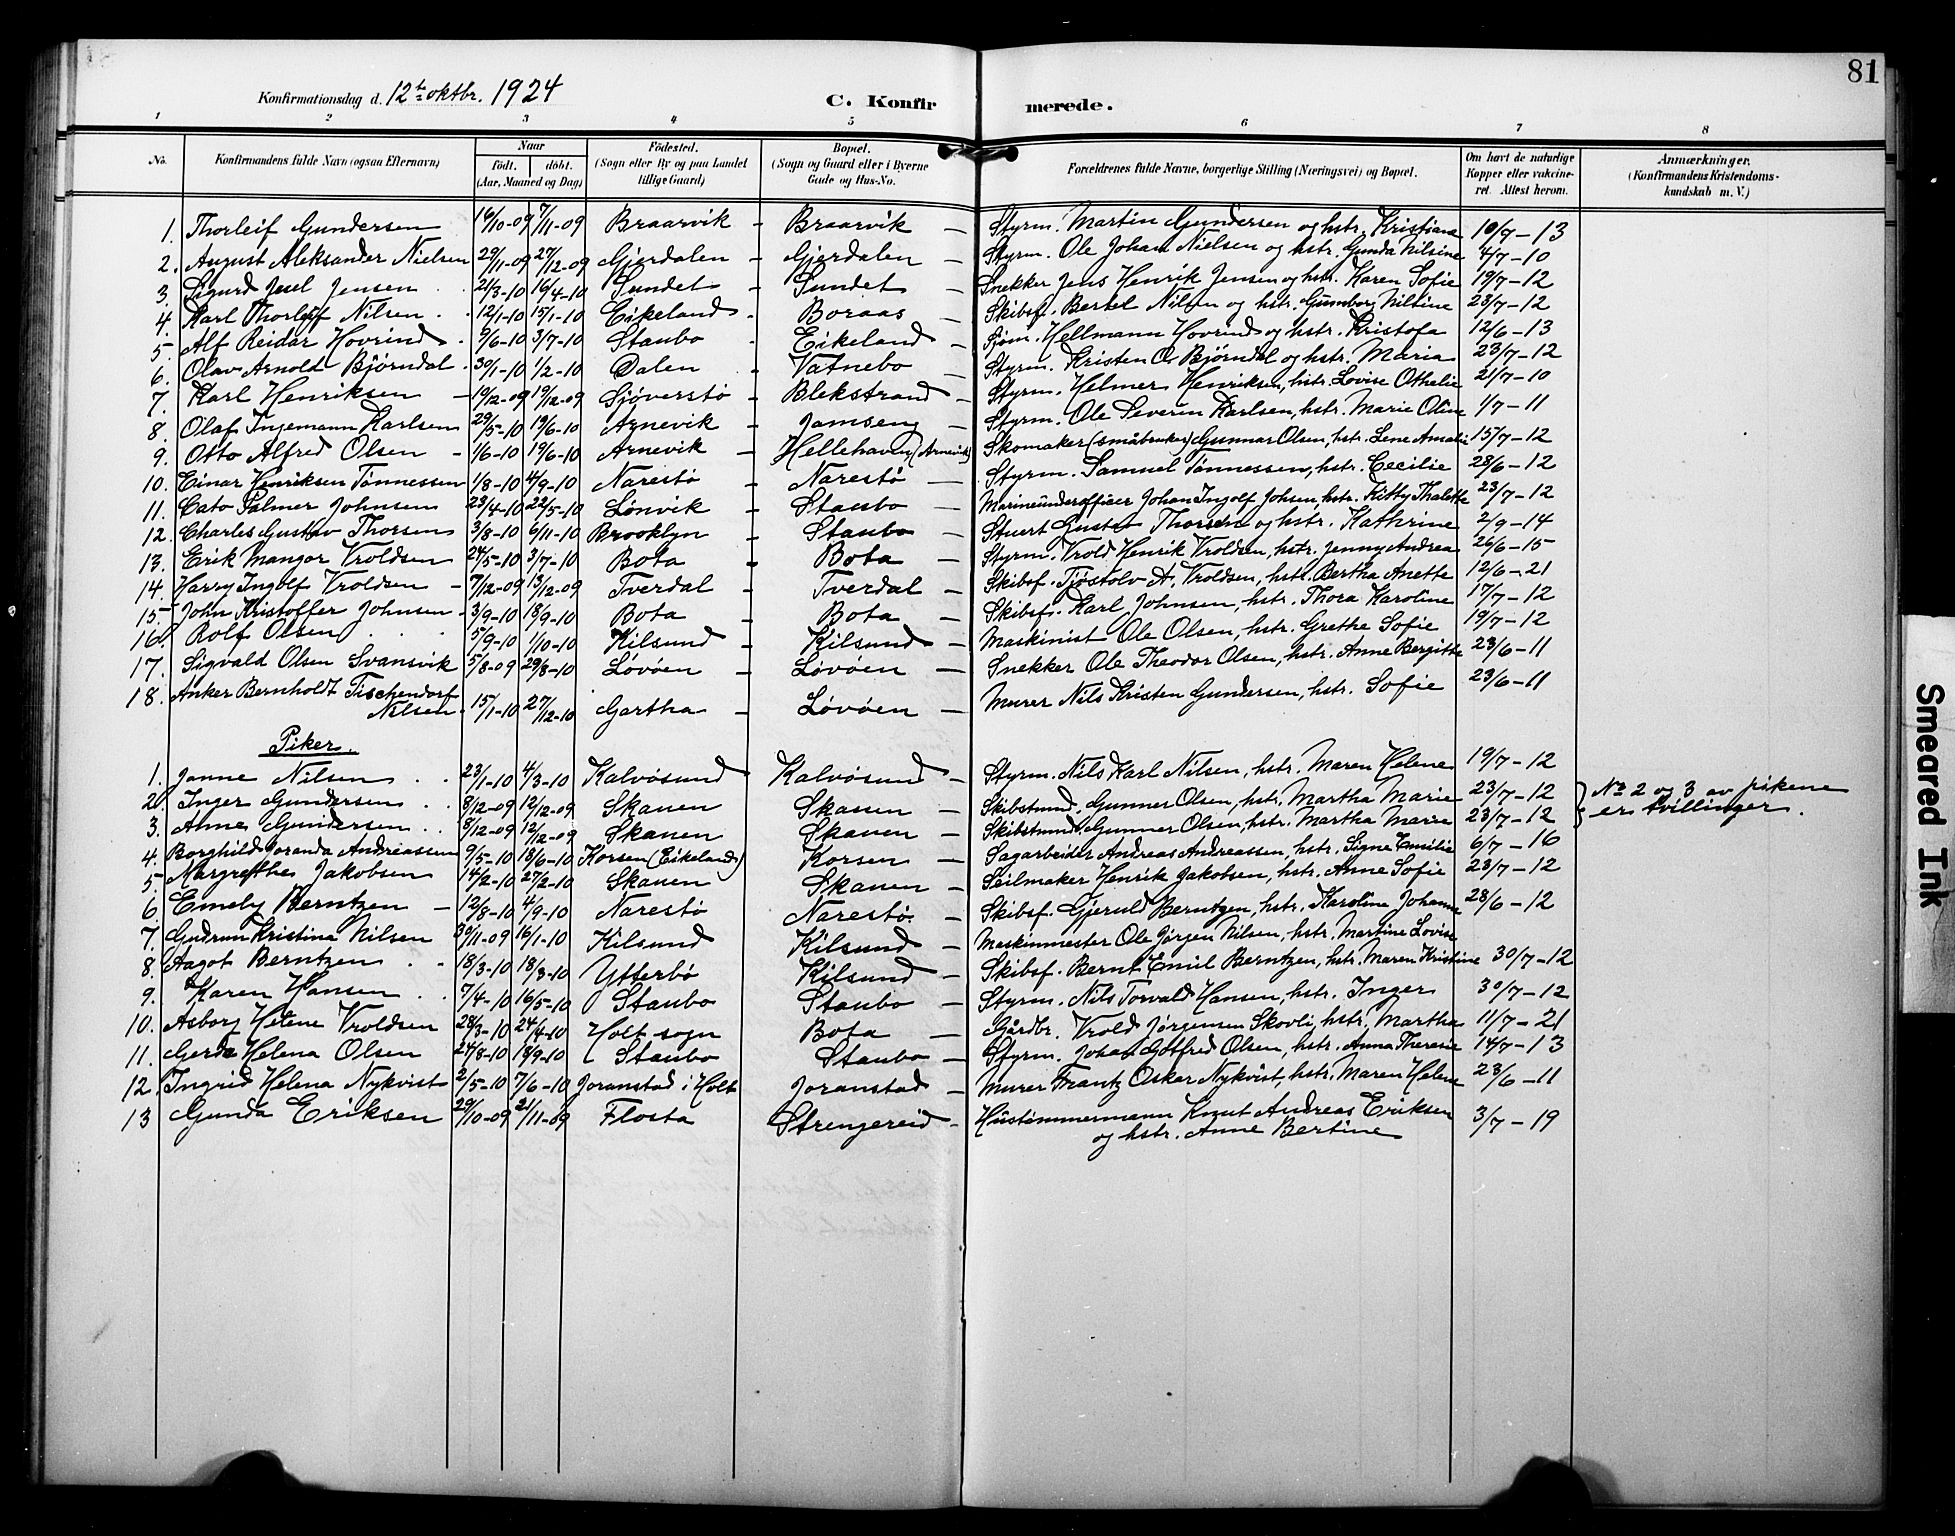 81
Konfirmationsdag d. 12te oktbr. 1924
C. Konfirmerede.
1 2 3 4 5 6 7 8
No. Konfirmandens fulde Navn (ogsaa Efternavn) Naar födt. döbt. (Aar, Maaned og Dag) Födested. (Sogn eller By og paa Landet tillige Gaard) Bopæl. (Sogn og Gaard eller i Byerne Gade og Hus-No. Forældrenes fulde Navne, borgerlige Stilling (Næringsvei) og Bopæl. Om havt de naturlige Kopper eller vakcineret. Attest herom. Anmærkninger. (Konfirmandens Kristendomskundskab m. V.)
1. Thorleif Gundersen 16/10-09 7/11-09 Braarvik - Braarvik - Styrm. Martin Gundersen og hstr. Kristiane 10/7-13
2. August Aleksander Nielsen 29/11-09 27/12-09 Gjerdalen - Gjerdalen - Styrm. Ole Johan Nielsen og hstr. Gunda Nilsine 4/7-10
3. Sigurd Juel Jensen 21/3-10 16/4-10 Sundet - Sundet - Snekker Jens Henrik Jensen og hstr. Karen Sofie 19/7-12
4. Karl Thorleif Nilsen 12/1-10 15/1-10 Eikeland - Boraas - Skibsf. Bertel Nilsen og hstr. Gunnborg Nilsine 23/7-12
5. Alf Reidar Hovrind 9/6-10 3/7-10 Staubo - Eikeland - Sjøm. Hellmann Hovrind og hstr. Kristofa 12/6-13
6. Olav Arnold Bjørndal 30/1-10 1/2-10 Dalen - Vatnebo - Styrm. Kristen O. Bjørndal og hstr. Maria 23/7-12
7. Karl Henriksen - 19/12-09 19/12-09 Sjöverstö - Blekstrand - Styrm. Helmer Henriksen, hstr. Lovise Othelie 21/7-10
8. Olaf Ingemann Karlsen 29/5-10 19/6-10 Arnevik - Jamseng - Styrm. Ole Severin Karlsen, hstr. Marie Oline 1/7-11
9. Otto Alfred Olsen - 1/6-10 19/6-10 Arnevik - Hellehaven (Arnevik) Skomaker (småbruker) Gunnar Olsen, hstr. Lene Amalie 15/7-12
10. Einar Henriksen Tönnessen 1/8-10 4/9-10 Narestö - Narestö - Styrm. Samuel Tönnessen, hstr. Cecilie 28/6-12
11. Cato Palmer Johnsen 23/4-10 22/5-10 Lönvik - Staubo - Marineunderofficer Johan Ingolf Johsen, hstr. Kitty Thalette 23/7-12
12. Charles Gustav Thorsen 3/8-10 6/11-10 Brooklyn - Staubo - Stuert Gustav Thorsen og hstr. Kathrine 2/9-14
13. Erik Mangor Vroldsen 24/5-10 3/7-10 Bota - Bota - Styrm. Vrold Henrik Vroldsen, hstr. Jenny Andrea 26/6-15
14. Harry Ingolf Vroldsen - 7/12-09 13/12-09 Tverdal - Tverdal - Skibsf. Tjöstolv A. Vroldsen, hstr. Bertha Anette 12/6-21
15. John Kristoffer Johnsen - 3/9-10 18/9-10 Bota - Bota - Skibsf. Karl Johnsen, hstr. Thora Karoline 17/7-12
16. Rolf Olsen 5/9-10 1/10-10 Kilsund - Kilsund - Maskinist Ole Olsen, hstr. Grethe Sofie 19/7-12
17. Sigvald Olsen Svansvik 5/8-09 29/8-10 Lövöen - Lövöen - Snekker Ole Theodor Olsen, hstr. Anne Bergitte 23/6-11
18. Anker Bernholdt Tischendorf Nilsen 15/1-10 27/12-10 Gartha - Lövöen - Murer Nils Kristen Gundersen, hstr. Sofie 23/6-11
Piker.
1. Janne Nilsen 23/1-10 4/3-10 Kalvösund Kalvösund - Styrm. Nils Karl Nilsen, hstr. Maren Helene 19/7-12
2. Inger Gundersen 8/12-09 12/12-09 Skauen Skauen - Skibstmd. Gunner Olsen, hstr. Martha Marie 23/7-12 } No 2 og 3 av pikene
3. Anne Gundersen 8/12-09 12/12-09 Skauen Skauen - Skibstmd. Gunner Olsen, hstr. Martha Marie 23/7-12 er tvillinger.
4. Borghild Joranda Andreassen 9/5-10 18/6-10 Korsen (Eikeland) Korsen - Sagarbeider Andreas Andreassen, hstr. Signe Emilie 6/7-16
5. Margrethe Jakobsen 14/2-10 27/2-10 Skauen Skauen - Seilmaker Henrik Jakobsen, hstr. Anne Sofie 23/7-12
6. Emely Berntzen - 12/8-10 4/9-10 Narestö Narestö - Skibsf. Gjeruld Berntzen, hstr. Karoline Johanne 28/6-12
7. Gudrun Kristine Nilsen 30/11-09 16/1-10 Kilsund Kilsund - Maskinmester Ole Jörgen Nilsen, hstr. Martine Lovise
8. Aagot Berntzen 18/3-10 18/3-10 Ytterbö Kilsund - Skibsf. Bernt Emil Berntzen, hstr. Maren Kristine 30/7-12
9. Karen Hansen 7/4-10 16/5-10 Staubo Staubo - Styrm. Nils Torvald Hansen, hstr. Inger 30/7-12
10. Asborg Helene Vroldsen 28/3-10 24/4-10 Holt sogn Bota - Gårdbr. Vrold Jørgensen Skovli, hstr. Martha 11/7-21
11. Gerda Helena Olsen 24/8-10 18/9-10 Staubo Staubo - Styrm. Johan Gotfred Olsen, hstr. Anna Theresie 14/7-13
12. Ingrid Helena Nykvist 2/5-10 7/6-10 Joranstad i Holt Joranstad - Murer Frantz Oskar Nykvist, hstr. Maren Helene 23/6-11
13 Gunda Eriksen 29/10-09 21/11-09 Flosta Strengereid - Hustimmermann Knut Andreas Eriksen 3/7-19
og hstr. Anne Bertine
Smeared Ink